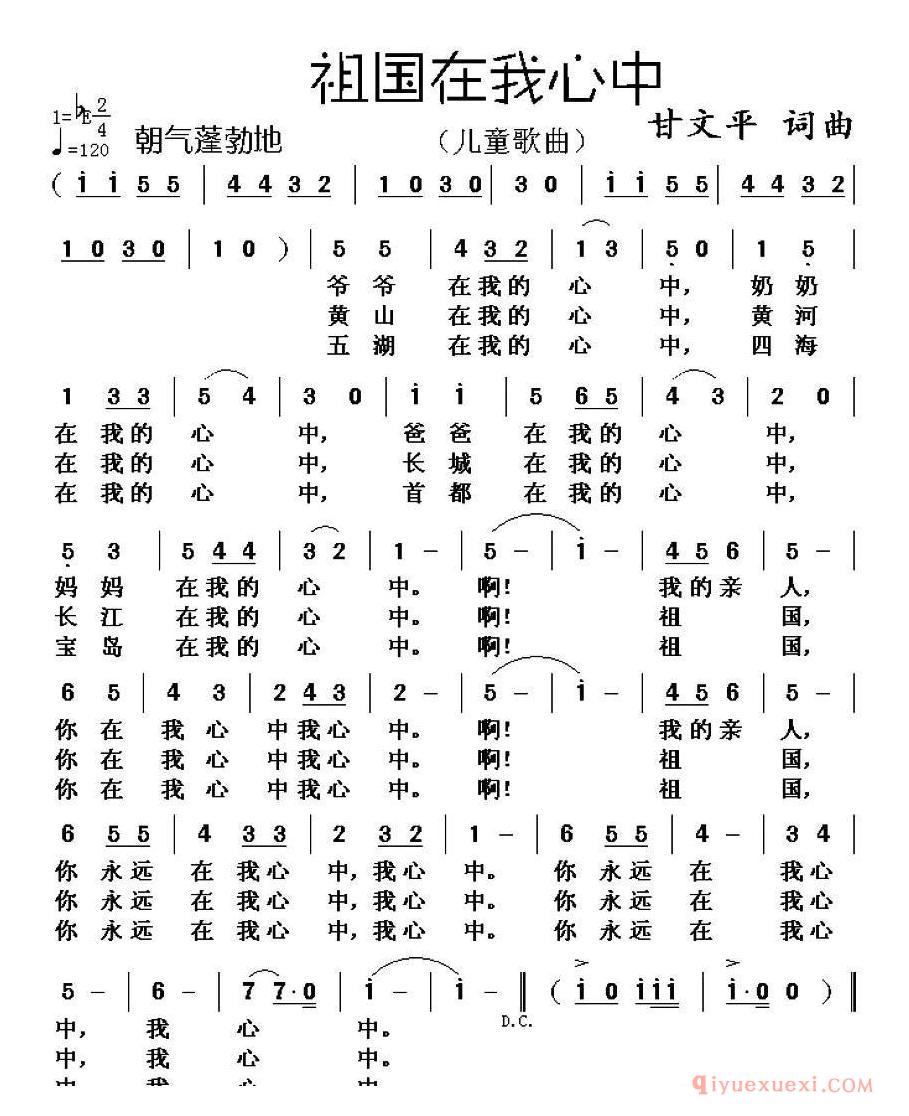 祖国在我心中
1=♭E 2/4
♩=120 朝气蓬勃地 （儿童歌曲） 甘文平 词曲
( i i 5 5 | 4 4 3 2 | 1 0 3 0 | 3 0 | i i 5 5 | 4 4 3 2 |
1 0 3 0 | 1 0 ) | 5 5 | 4 3 2 | 1 3 | 5 0 | 1 5 |
爷爷 在我的 心 中, 奶奶
黄山 在我的 心 中, 黄河
五湖 在我的 心 中, 四海
1 3 3 | 5 4 | 3 0 | i i | 5 6 5 | 4 3 | 2 0 |
在我的 心 中, 爸爸 在我的 心 中,
在我的 心 中, 长城 在我的 心 中,
在我的 心 中, 首都 在我的 心 中,
5 3 | 5 4 4 | 3 2 | 1 - | 5 - | i - | 4 5 6 | 5 - |
妈妈 在我的 心 中。 啊! 我的亲 人,
长江 在我的 心 中。 啊! 祖 国,
宝岛 在我的 心 中。 啊! 祖 国,
6 5 | 4 3 | 2 4 3 | 2 - | 5 - | i - | 4 5 6 | 5 - |
你在 我心 中我心 中。 啊! 我的亲 人,
你在 我心 中我心 中。 啊! 祖 国,
你在 我心 中我心 中。 啊! 祖 国,
6 5 5 | 4 3 3 | 2 3 2 | 1 - | 6 5 5 | 4 - | 3 4 |
你永远 在我心 中,我心 中。 你永远 在 我心
你永远 在我心 中,我心 中。 你永远 在 我心
你永远 在我心 中,我心 中。 你永远 在 我心
5 - | 6 - | 7 7·0 | i - | i - ‖ ( i 0 i i i | i·0 0 ) ‖
D.C.
中, 我 心 中。
中, 我 心 中。
中, 我 心 中。
qiyuexuexi.COM